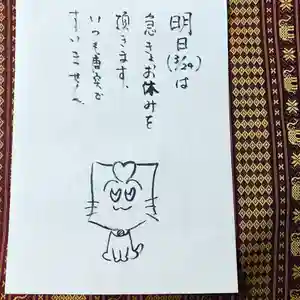 明日(3/29)は
急きょお休みを
頂きます。
いつも唐突で
すいません。